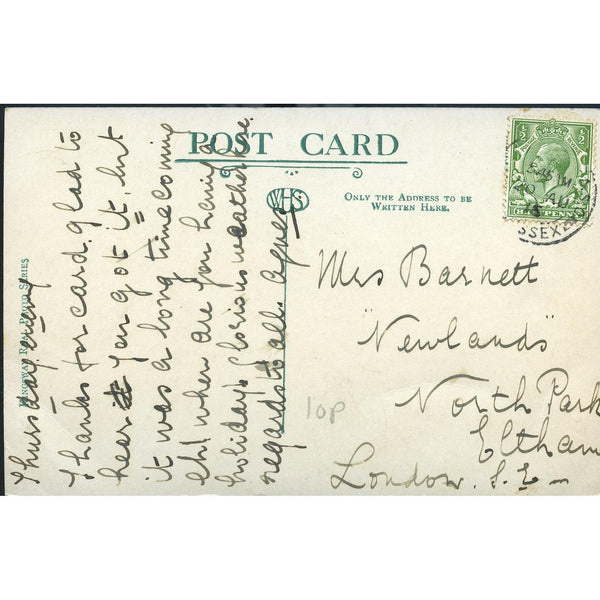 POST CARD
WHS
ONLY THE ADDRESS TO BE
WRITTEN HERE.
KINGSWAY REAL PHOTO SERIES
Thursday
Thanks for card, glad to
hear you got it, but
it was a long time coming
eh! when are you having
holidays glorious weather here.
regards to all. Agnes
Mrs Barnett
"Newlands"
North Park
Eltham
London. S. E
10P
½ ½
HALF PENNY
AU
SSEX